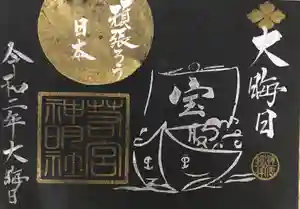 大晦日
頑張ろう
日本
宝船
若宮
神明社
令和二年大晦日